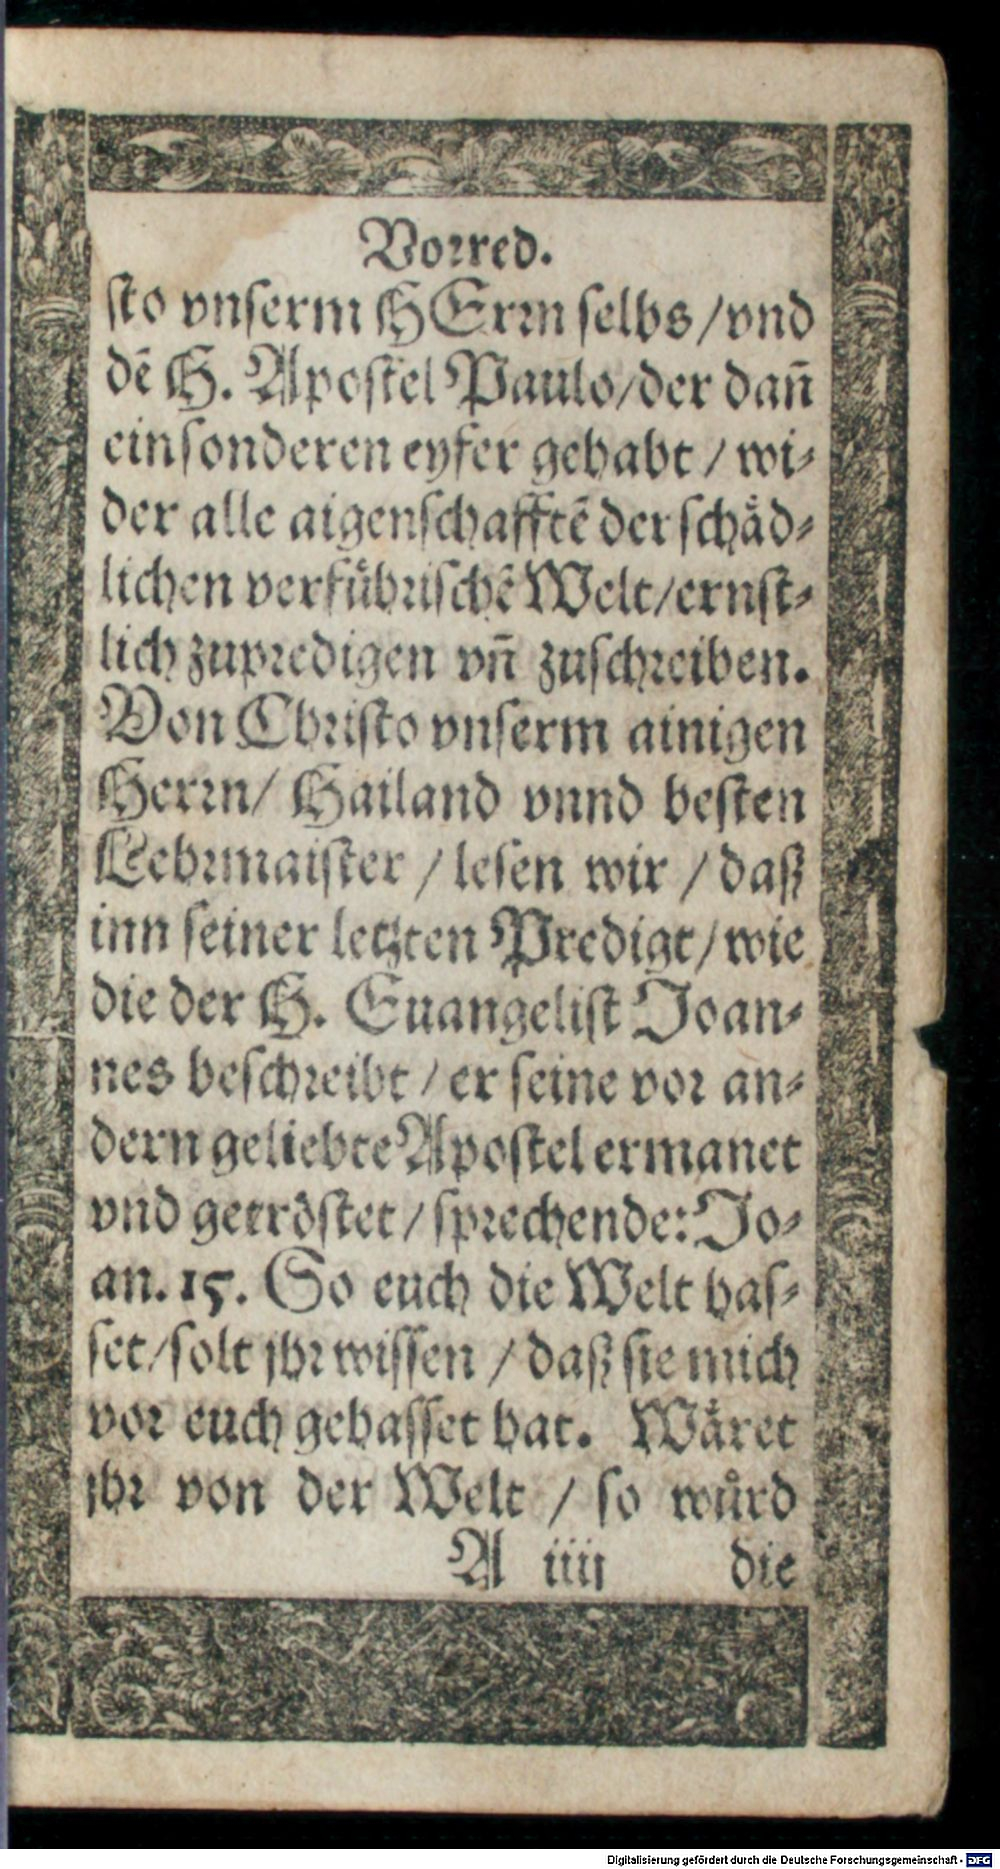 Vorred.
sto vnserm HErrn selbs / vnd
dẽ H. Apostel Paulo / der dañ
ein sonderen eyfer gehabt / wi-
der alle aigenschafftẽ der schåd-
lichen verfůhrischẽ Welt / ernst-
lich zupredigen vñ zuschreiben.
Von Christo vnserm ainigen
Herrn / Hailand vnnd besten
Lehrmaister / lesen wir / daß
inn seiner letzten Predigt / wie
die der H. Euangelist Joan-
nes beschreibt / er seine vor an-
dern geliebte Apostel ermanet
vnd getröstet / sprechende: Jo-
an. 15. So euch die Welt has-
set / solt jhr wissen / daß sie mich
vor euch gehasset hat. Wåret
jhr von der Welt / so wůrd
A iiij die
Digitalisierung gefördert durch die Deutsche Forschungsgemeinschaft - DFG